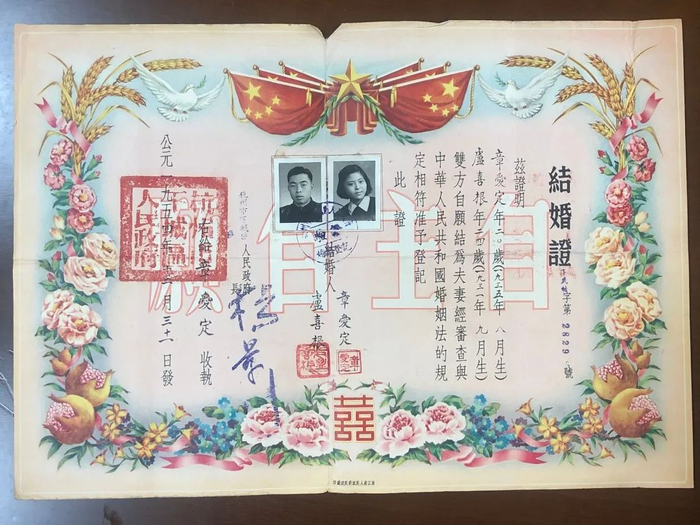 結婚證
字第2829號
茲證明
章愛定年二〇歲(一九三五年八月生)
盧喜根年二四歲(一九三一年九月生)
雙方自願結為夫妻經審查與
中華人民共和國婚姻法的規
定相符准予登記
此證
結婚人
章愛定
盧喜根
人民政府
長
右給章愛定收執
公元一九五四年十二月三十一日發
自主自願
人民政府
囍